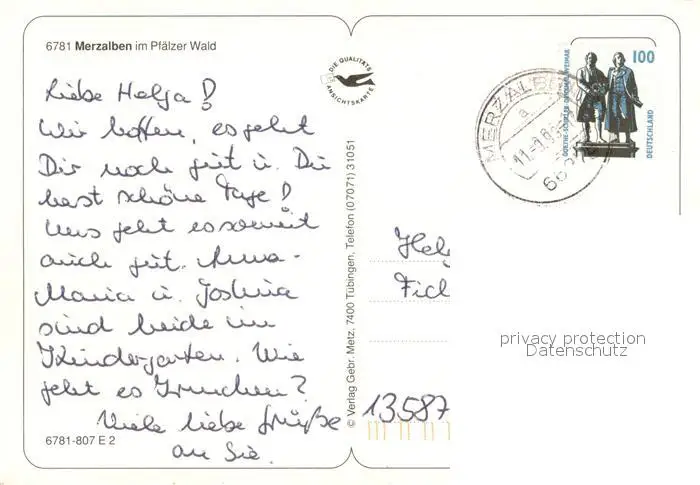 6781 Merzalben im Pfälzer Wald
DIE QUALITÄTS
ANSICHTSKARTE
Liebe Helga!
Wir hoffen, es geht
Dir noch gut u. Du
hast schöne Tage!
Uns geht es soweit
auch gut. Anna-
Maria u. Joshua
sind beide im
Kindergarten. Wie
geht es
Viele liebe Grüße
an Sie.
6781-807 E 2
© Verlag Gebr. Metz, 7400 Tübingen, Telefon (07071) 31051
MERZALBEN
a
GOETHE-SCHILLER-DENKMAL WEIMAR
100
DEUTSCHLAND
Helg
Fich
13587
privacy protection
Datenschutz